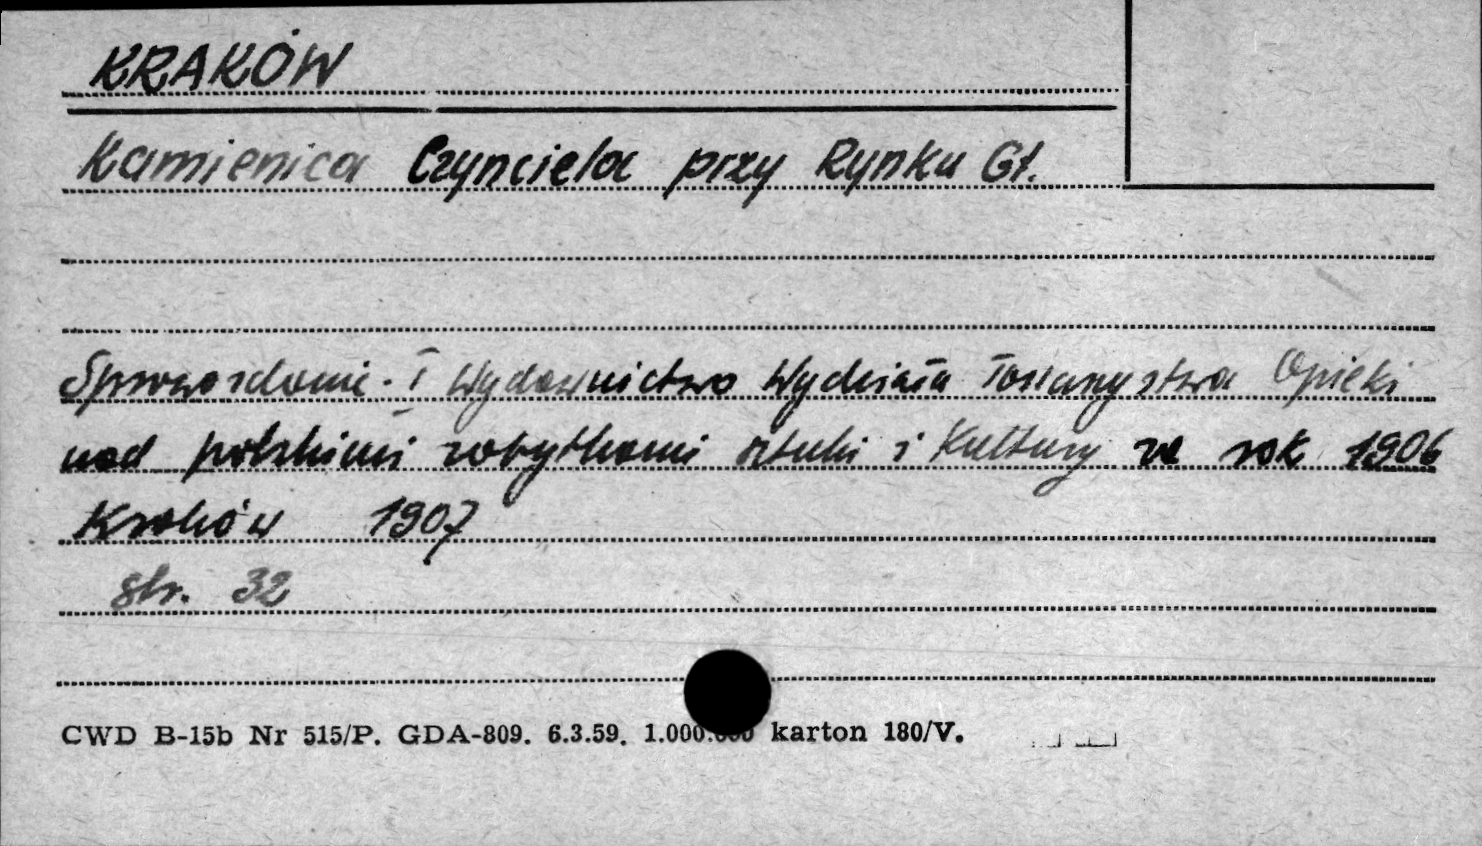 KRAKÓW
Kamienica Czynciela przy Rynku Gł.
Sprawozdanie. I Wydawnictwo Wydziału Towarzystwa Opieki
nad polskimi zabytkami sztuki i Kultury za rok 1906
Kraków 1907
str. 32
CWD B-15b Nr 515/P. GDA-809. 6.3.59. 1.000.000 karton 180/V.